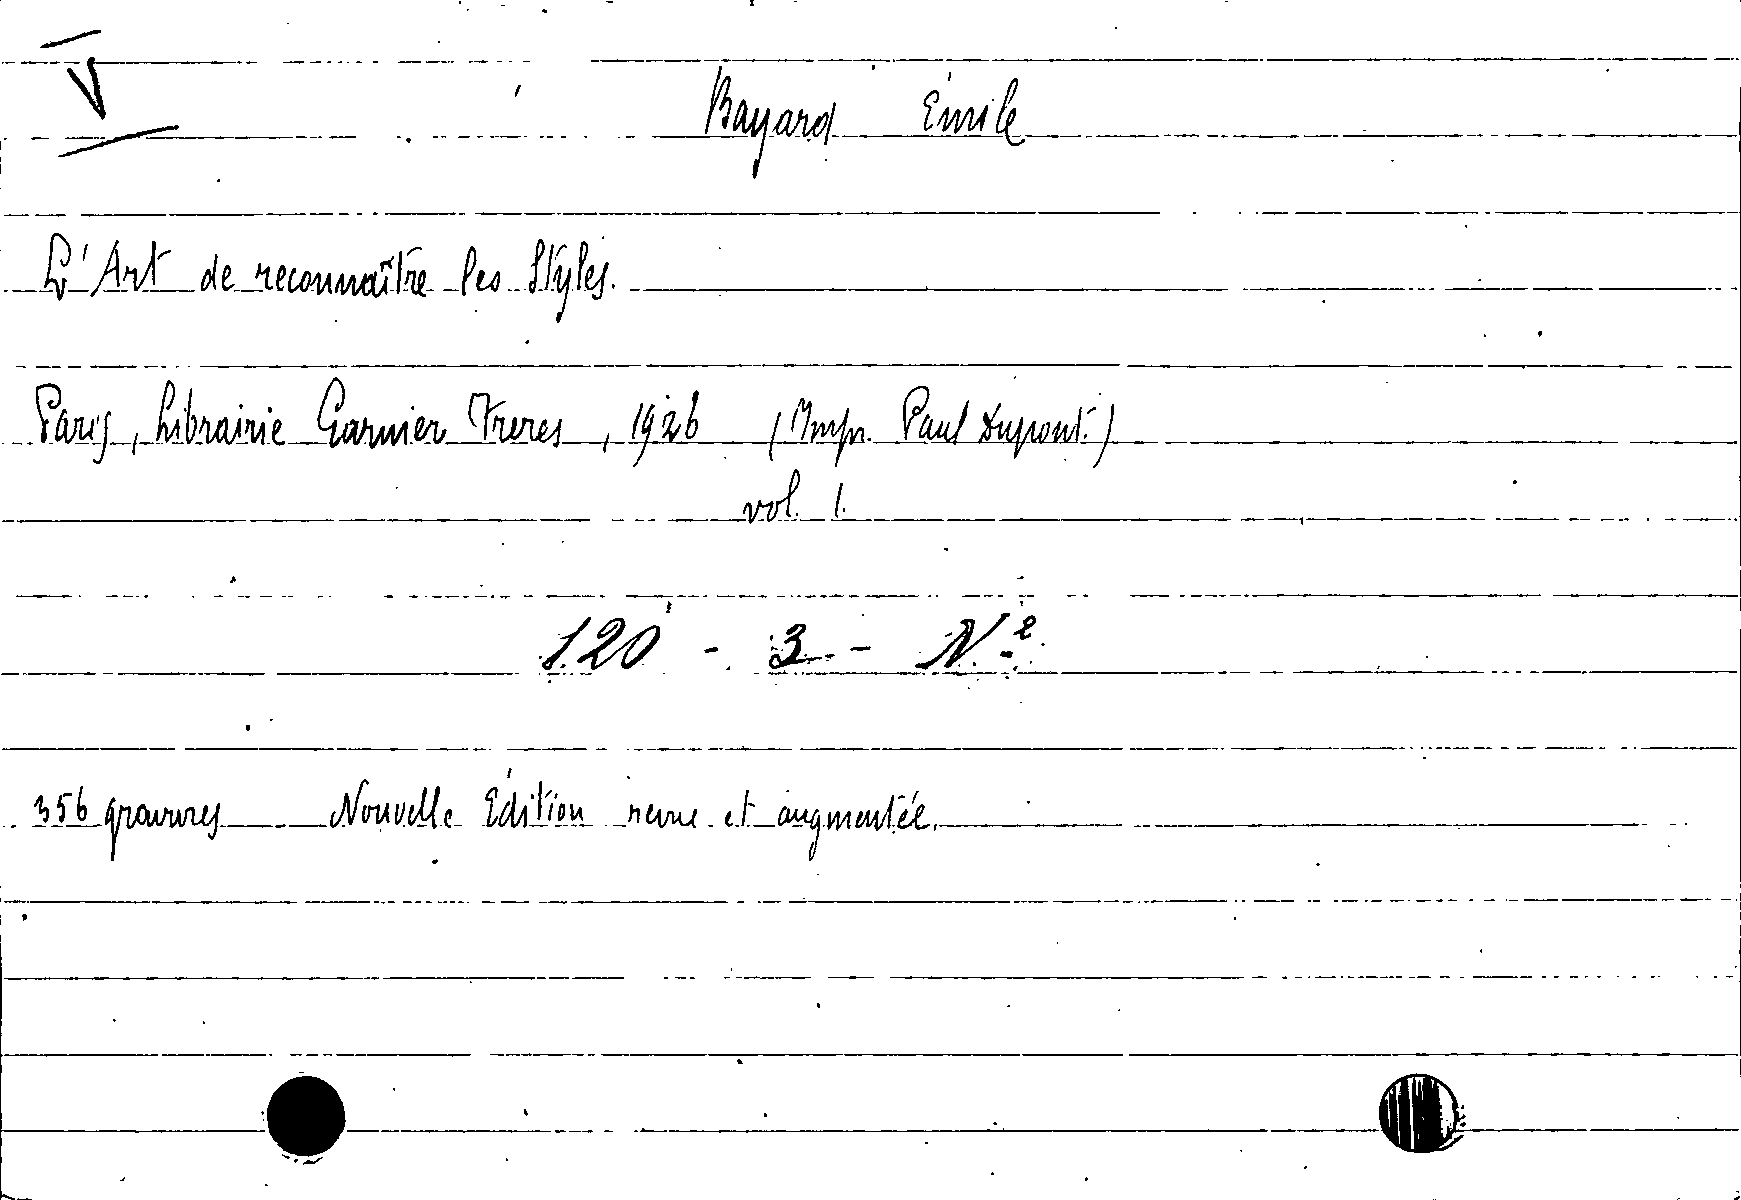 V
Bayard Émile
L'Art de reconnaître les Styles.
Paris, Librairie Garnier Freres, 1926 (Impr. Paul Dupont.)
vol. 1.
120 - 3 - N.e
356 gravures Nouvelle Édition revue et augmentée.